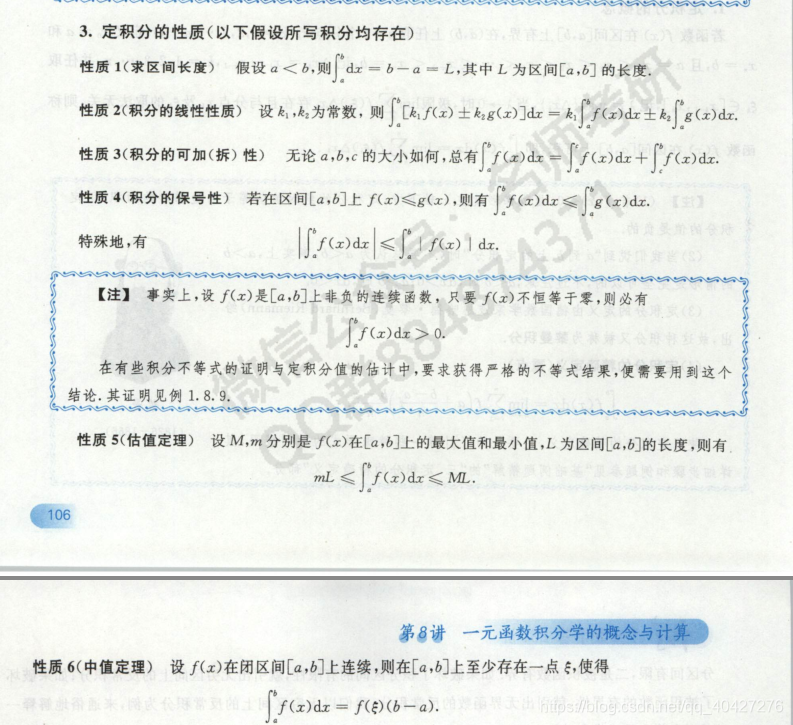 3. 定积分的性质(以下假设所写积分均存在)
性质 1(求区间长度) 假设 a < b,则∫_a^b dx = b − a = L,其中 L 为区间[a,b] 的长度.
性质 2(积分的线性性质) 设 k₁,k₂为常数, 则∫_a^b [k₁f(x) ± k₂g(x)]dx = k₁∫_a^b f(x)dx ± k₂∫_a^b g(x)dx.
性质 3(积分的可加(拆)性) 无论 a,b,c 的大小如何,总有∫_a^b f(x)dx = ∫_a^c f(x)dx + ∫_c^b f(x)dx.
性质 4(积分的保号性) 若在区间[a,b]上 f(x)≤g(x),则有∫_a^b f(x)dx ≤ ∫_a^b g(x)dx.
特殊地,有 |∫_a^b f(x)dx| ≤ ∫_a^b | f(x) | dx.
【注】 事实上,设 f(x)是[a,b]上非负的连续函数, 只要 f(x)不恒等于零,则必有
∫_a^b f(x)dx > 0.
在有些积分不等式的证明与定积分值的估计中,要求获得严格的不等式结果,便需要用到这个
结论.其证明见例 1.8.9.
性质 5(估值定理) 设 M,m 分别是 f(x)在[a,b]上的最大值和最小值,L 为区间[a,b]的长度,则有
mL ≤ ∫_a^b f(x)dx ≤ ML.
106
微信公众号:名师考研
QQ群884874371
第8讲 一元函数积分学的概念与计算
性质 6(中值定理) 设 f(x)在闭区间[a,b]上连续,则在[a,b]上至少存在一点 ξ,使得
∫_a^b f(x)dx = f(ξ)(b − a).
https://blog.csdn.net/qq_40427276